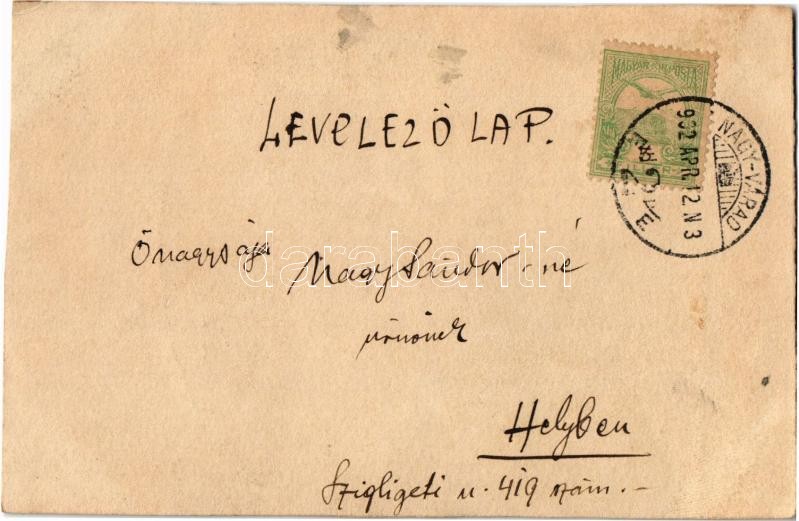 MAGYAR KIR. POSTA
NAGY-VÁRAD
902 APR. 12 N 3
LEVELEZŐ LAP.
Őnagysága
Nagy Sándor-né
úrnőnek
Helyben
Szigligeti u. 419 szám.-
darabanth